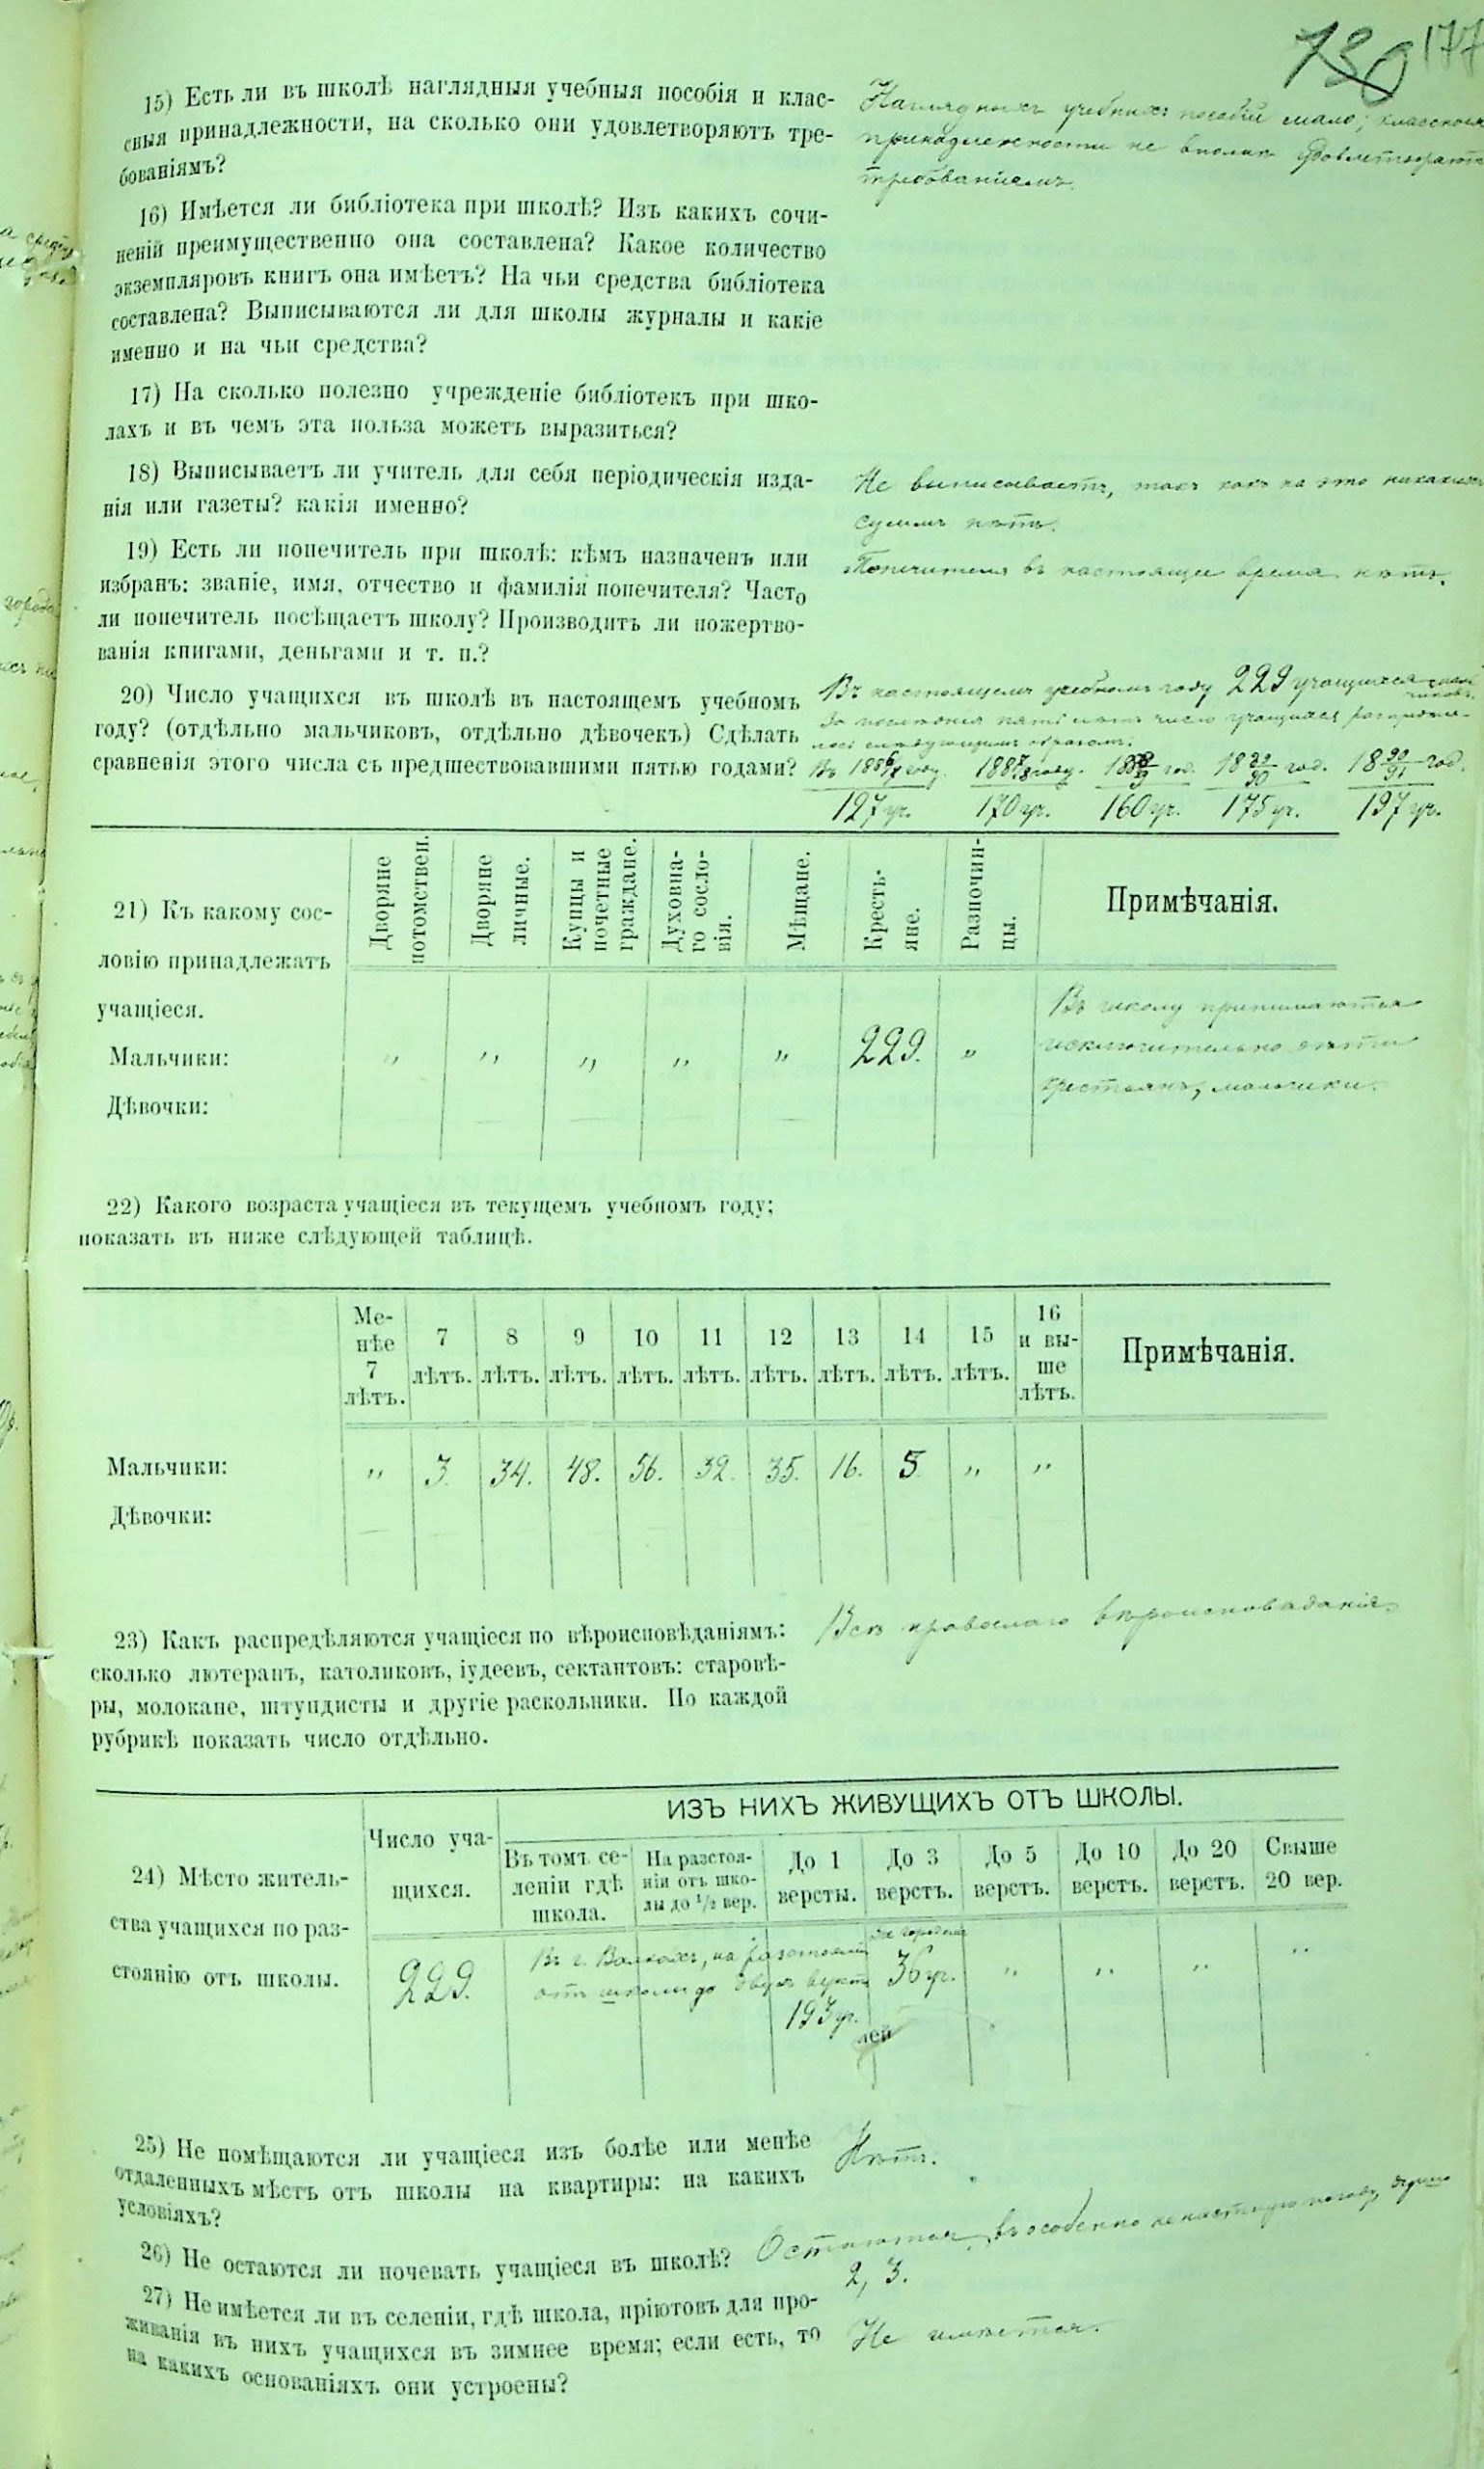 177
730
15) Есть ли въ школѣ наглядныя учебныя пособія и клас-
сныя принадлежности, на сколько они удовлетворяютъ тре-
бованіямъ?
Наглядныхъ учебныхъ пособій мало; классныя
принадлежности не вполнѣ удовлетворяютъ
требованіямъ.
16) Имѣется ли библіотека при школѣ? Изъ какихъ сочи-
неній преимущественно она составлена? Какое количество
экземпляровъ книгъ она имѣетъ? На чьи средства библіотека
составлена? Выписываются ли для школы журналы и какіе
именно и на чьи средства?
17) На сколько полезно учрежденіе библіотекъ при шко-
лахъ и въ чемъ эта польза можетъ выразиться?
18) Выписываетъ ли учитель для себя періодическія изда-
нія или газеты? какія именно?
Не выписываетъ, такъ какъ на это никакихъ
суммъ нѣтъ.
19) Есть ли попечитель при школѣ: кѣмъ назначенъ или
избранъ: званіе, имя, отчество и фамилія попечителя? Часто
ли попечитель посѣщаетъ школу? Производитъ ли пожертво-
ванія книгами, деньгами и т. п.?
Попечителя въ настоящее время нѣтъ.
20) Число учащихся въ школѣ въ настоящемъ учебномъ
году? (отдѣльно мальчиковъ, отдѣльно дѣвочекъ) Сдѣлать
сравненія этого числа съ предшествовавшими пятью годами?
Въ настоящемъ учебномъ году 229 учащихся
За послѣднія пять лѣтъ число учащихся распредѣля-
лось слѣдующимъ образомъ:
Въ 1886/7 году. 1887/8 году. 1888/9 год. 1889/90 год. 1890/91 год.
127 уч. 170 уч. 160 уч. 175 уч. 197 уч.
21) Къ какому сос-
ловію принадлежатъ
учащіеся.
Дворяне потомствен.
Дворяне личные.
Купцы и почетные граждане.
Духовна-го сосло-вія.
Мѣщане.
Кресть-яне.
Разночин-цы.
Примѣчанія.
Мальчики: " " " " " 229. "
Дѣвочки:
Въ школу принимаются
исключительно дѣти
крестьянъ, мальчики.
22) Какого возраста учащіеся въ текущемъ учебномъ году;
показать въ ниже слѣдующей таблицѣ.
Ме-нѣе 7 лѣтъ. 7 лѣтъ. 8 лѣтъ. 9 лѣтъ. 10 лѣтъ. 11 лѣтъ. 12 лѣтъ. 13 лѣтъ. 14 лѣтъ. 15 лѣтъ. 16 и вы-ше лѣтъ. Примѣчанія.
Мальчики: " 3. 34. 48. 56. 32. 35. 16. 5 " "
Дѣвочки:
23) Какъ распредѣляются учащіеся по вѣроисповѣданіямъ:
сколько лютеранъ, католиковъ, іудеевъ, сектантовъ: старовѣ-
ры, молокане, штундисты и другіе раскольники. По каждой
рубрикѣ показать число отдѣльно.
Всѣ православнаго вѣроисповѣданія.
24) Мѣсто житель-
ства учащихся по раз-
стоянію отъ школы.
Число уча-
щихся.
ИЗЪ НИХЪ ЖИВУЩИХЪ ОТЪ ШКОЛЫ.
Въ томъ се-леніи гдѣ школа.
На разстоя-ніи отъ шко-лы до ½ вер.
До 1 версты.
До 3 верстъ.
До 5 верстъ.
До 10 верстъ.
До 20 верстъ.
Свыше 20 вер.
229.
Въ г. Валкахъ, на разстояніи
отъ школы до двухъ верстъ
193 уч.
За городомъ
36 уч. " " " "
25) Не помѣщаются ли учащіеся изъ болѣе или менѣе
отдаленныхъ мѣстъ отъ школы на квартиры: на какихъ
условіяхъ?
Нѣтъ.
26) Не остаются ли ночевать учащіеся въ школѣ?
Остаются, въ особенно ненастную погоду,
2, 3.
27) Не имѣется ли въ селеніи, гдѣ школа, пріютовъ для про-
живанія въ нихъ учащихся въ зимнее время; если есть, то
на какихъ основаніяхъ они устроены?
Не имѣется.